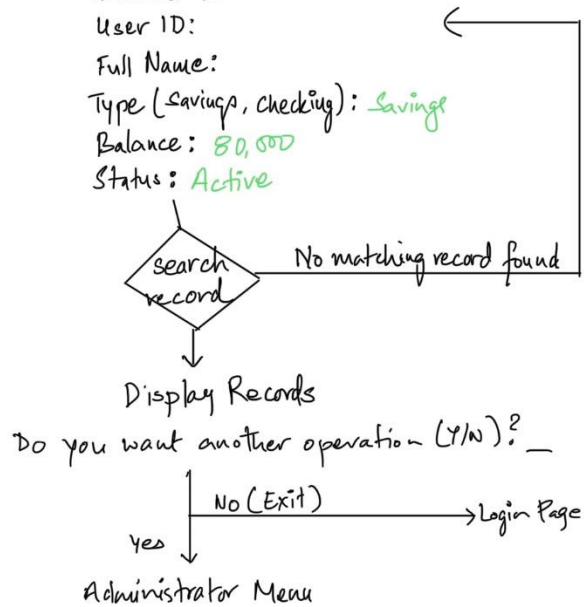 User ID:
Full Name:
Type (Savings, checking): Savings
Balance: 80,000
Status: Active
search
record
No matching record found
Display Records
Do you want another operation (Y/N)? _
No (Exit)
Login Page
Yes
Administrator Menu